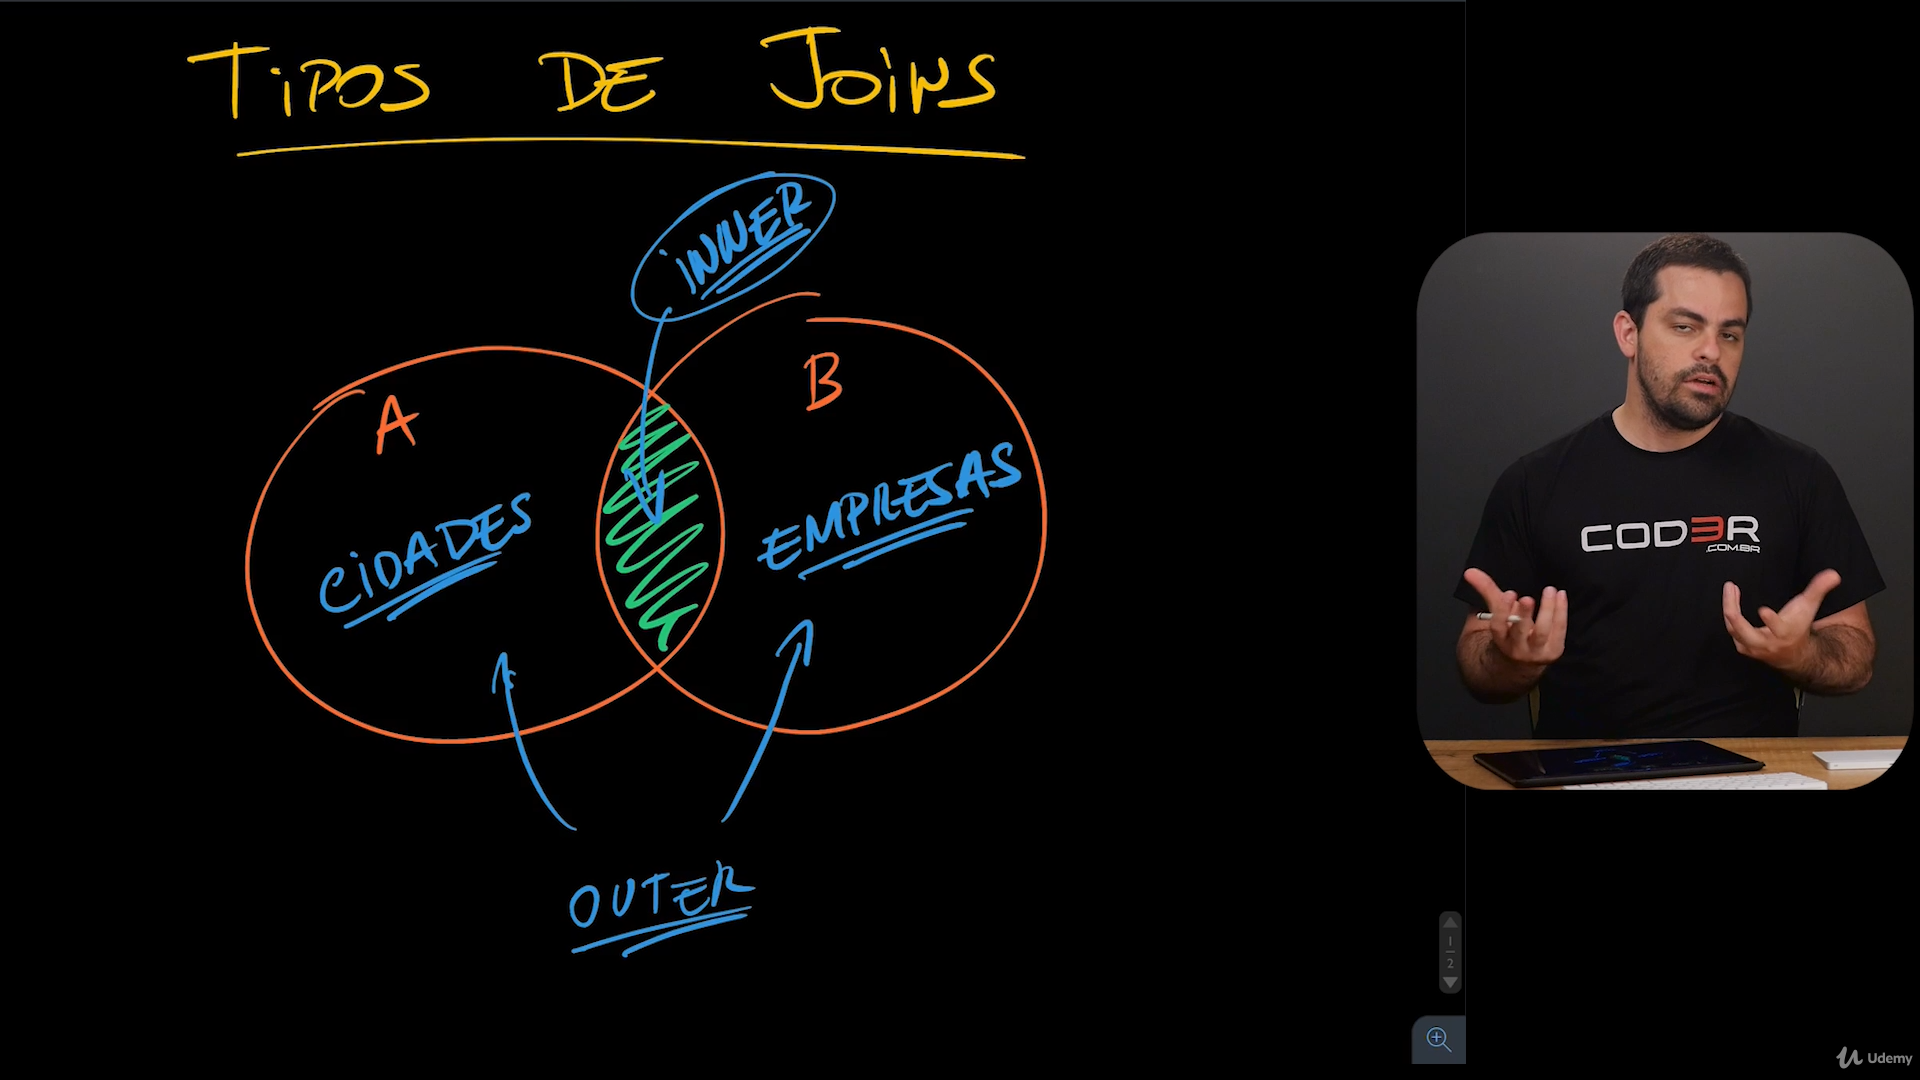 TiPOS DE JOiNS
iNNER
A
B
CiDADES
EMPRESAS
OUTER
COD3R
.COM.BR
1
2
Udemy